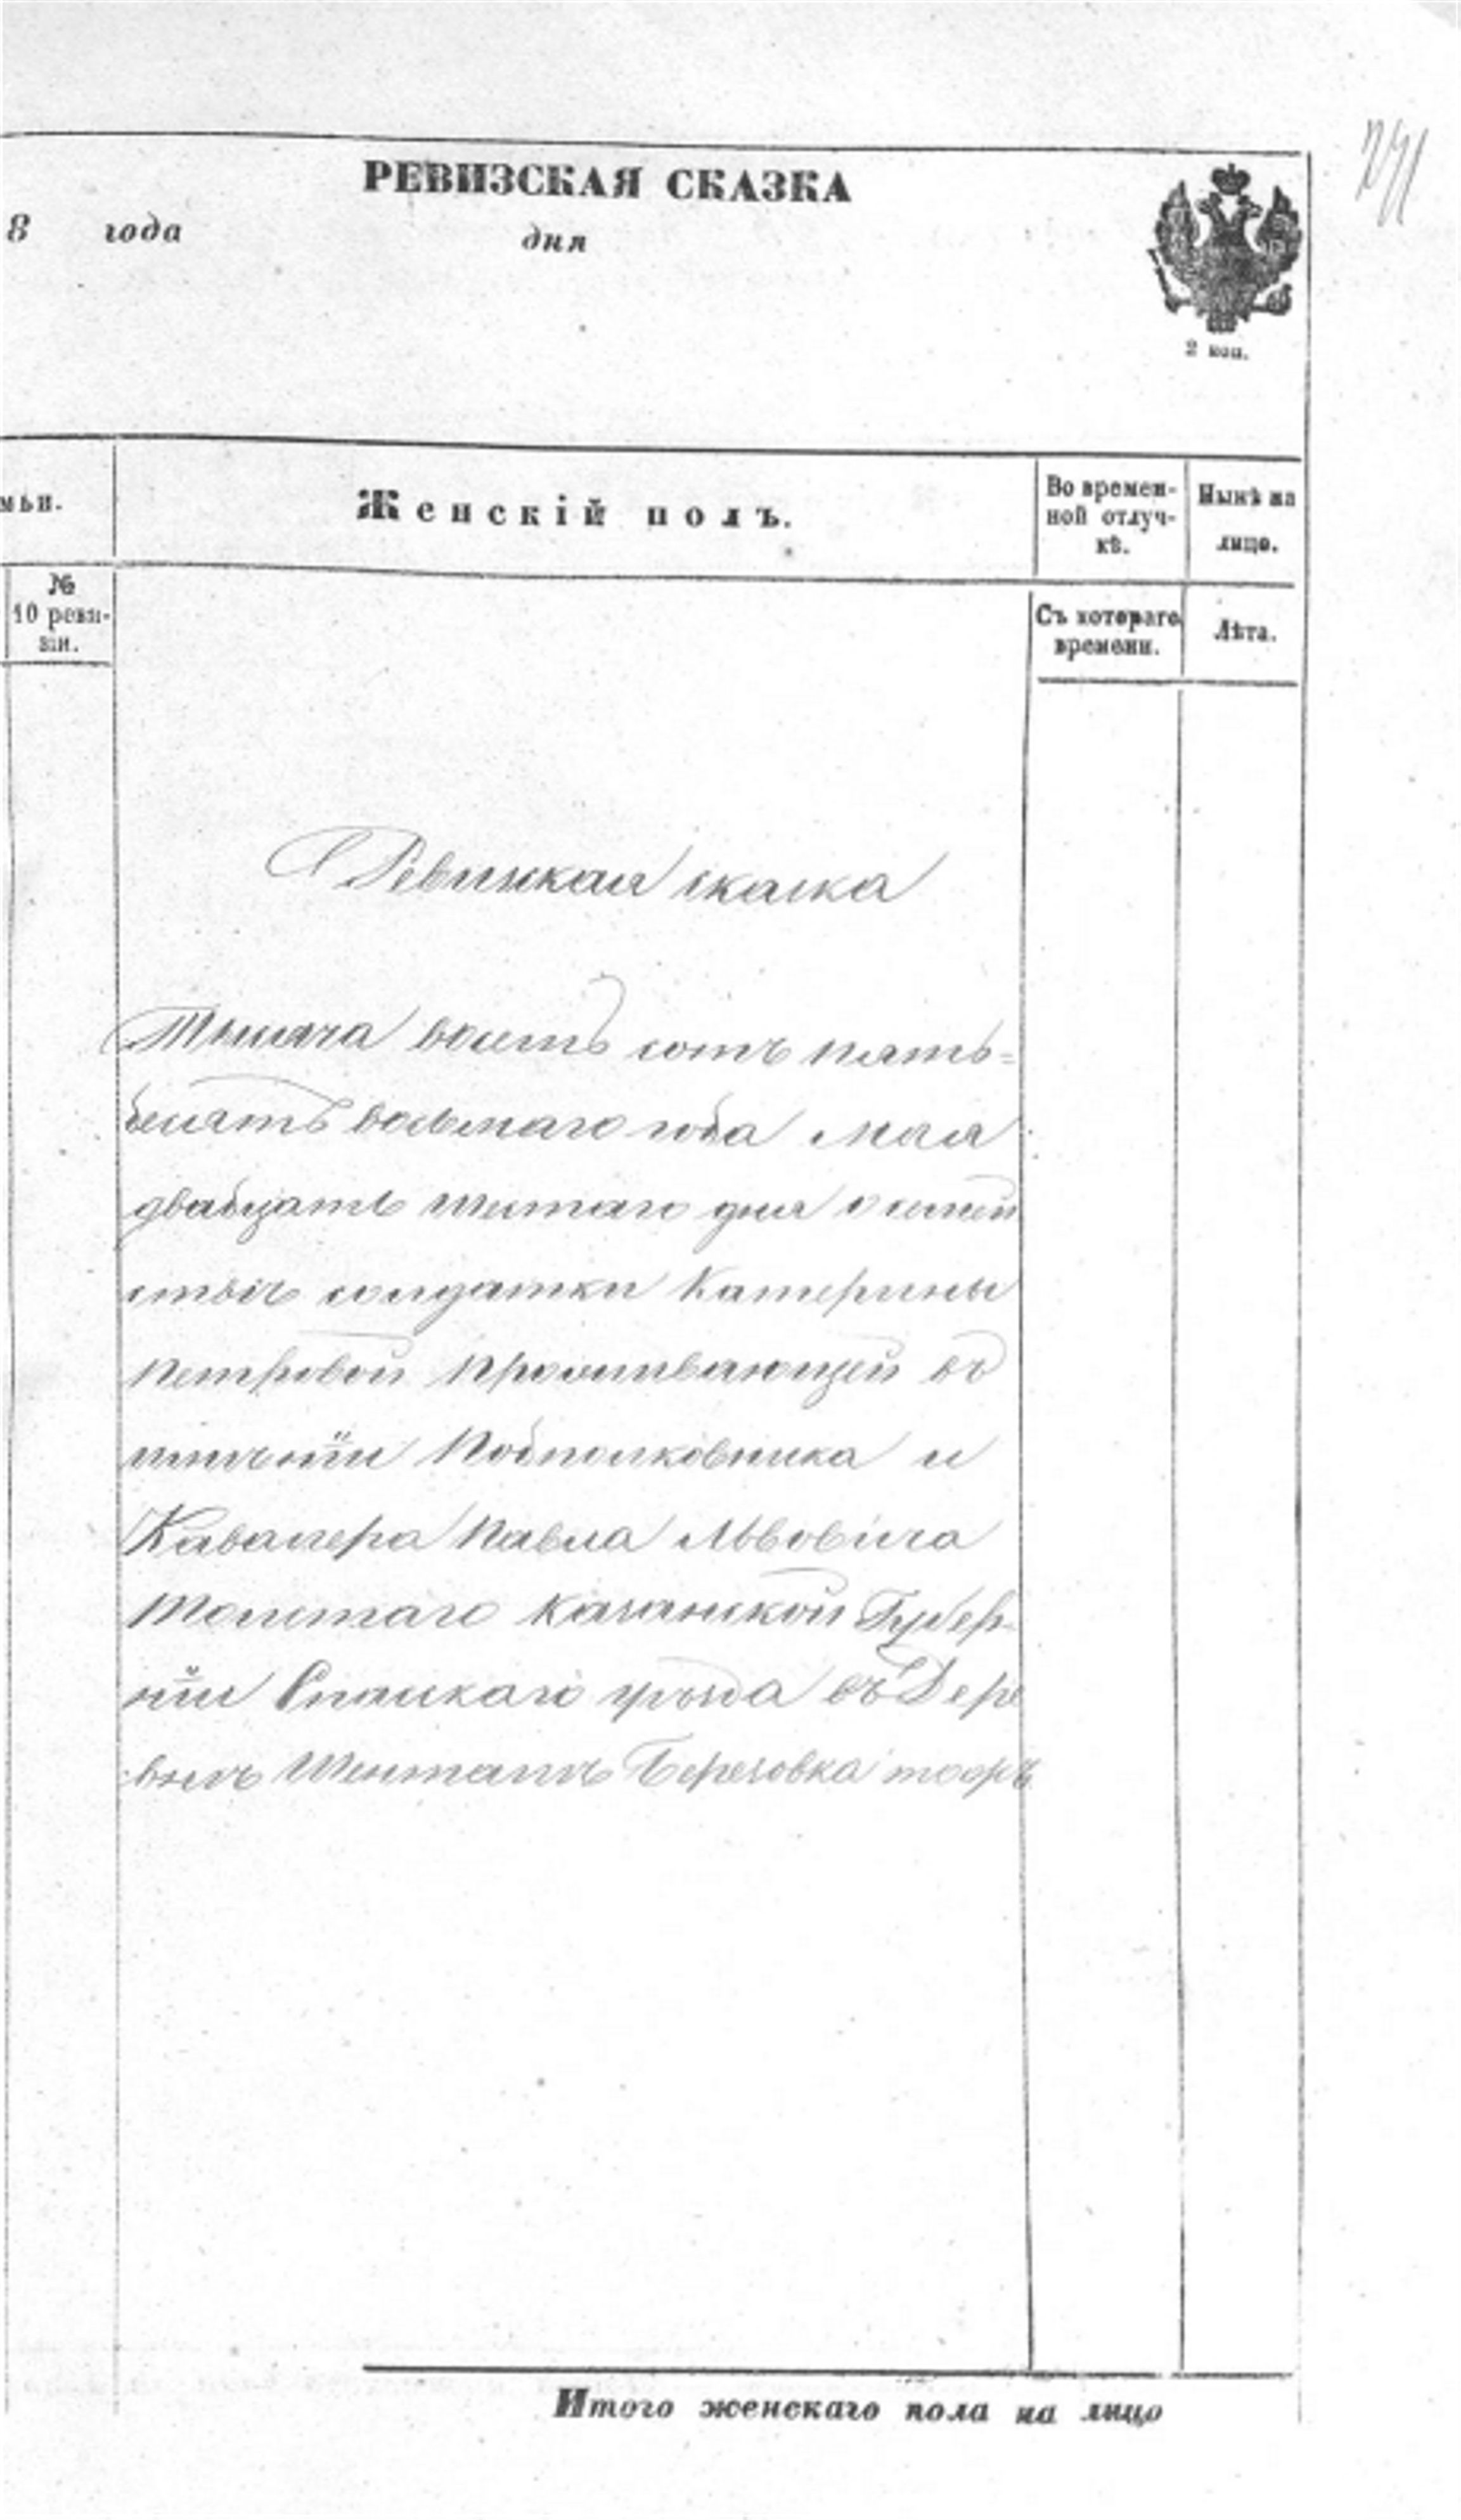 РЕВИЗСКАЯ СКАЗКА
8 года дня
2 коп.
мьи.
Женскій полъ.
Во времен-
ной отлуч-
кѣ.
Нынѣ на
лицо.
№
10 реви-
зіи.
Съ котораго
времени.
Лѣта.
Ревизкая сказка
Тысяча восемь сотъ пять=
десять восьмаго года мая
двадцать шестаго дня о семей
ствѣ солдатки Катерины
Петровой проживающей въ
имѣніи Подполковника и
Кавалера Павла Львовича
Толстаго Казанской Губер-
ніи Спаскаго уѣзда въ Дере
внѣ Шентале Березовка
Итого женскаго пола на лицо